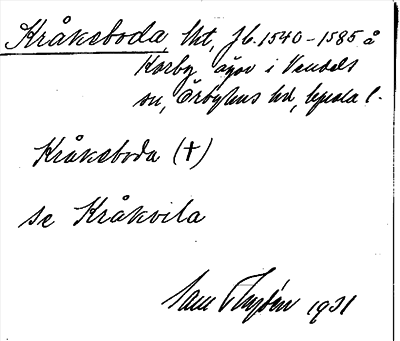 Kråkeboda, Ut, Jb. 1540-1585 å
Karby ägor i Vendels
sn, Örbyhus hd, Upsala l.
Kråkeboda (†)
se Kråkvila
1931